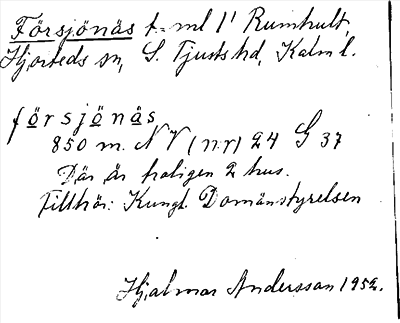 Försjönäs t. ml 1' Rumhult,
Hjorteds sn, S. Tjusts hd, Kalm l.
försjönäs
850 m. N V (nr) 24 G 37
Där är troligen 2 hus.
Tillhör: Kungl. Domänstyrelsen
Hjalmar Andersson 1952.